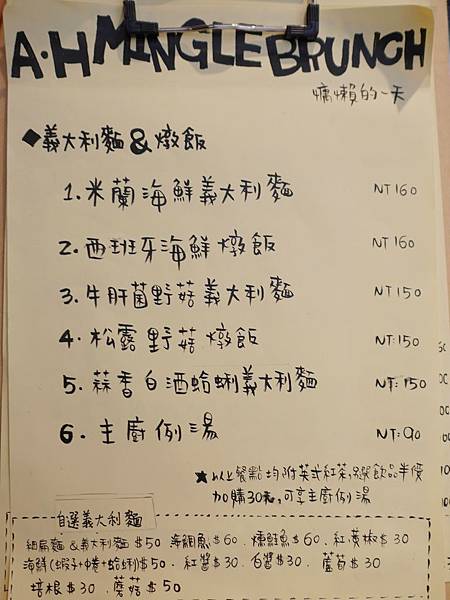 A·H MINGLE BRUNCH
慵懶的一天
◆義大利麵&燉飯
1.米蘭海鮮義大利麵 NT160
2.西班牙海鮮燉飯 NT160
3.牛肝菌野菇義大利麵 NT150
4.松露野菇燉飯 NT:150
5.蒜香白酒蛤蜊義大利麵 NT:150
6.主廚例湯 NT:90
★以上餐點均附英式紅茶,另選飲品半價
加購30元,可享主廚例湯
自選義大利麵
細扁麵&義大利麵$50 海鯛魚$60、燻鮭魚$60、紅黃椒$30
海鮮(蝦子+中卷+蛤蜊)$50、紅醬$30、白醬$30、蘆筍$30
培根$30、蘑菇$50